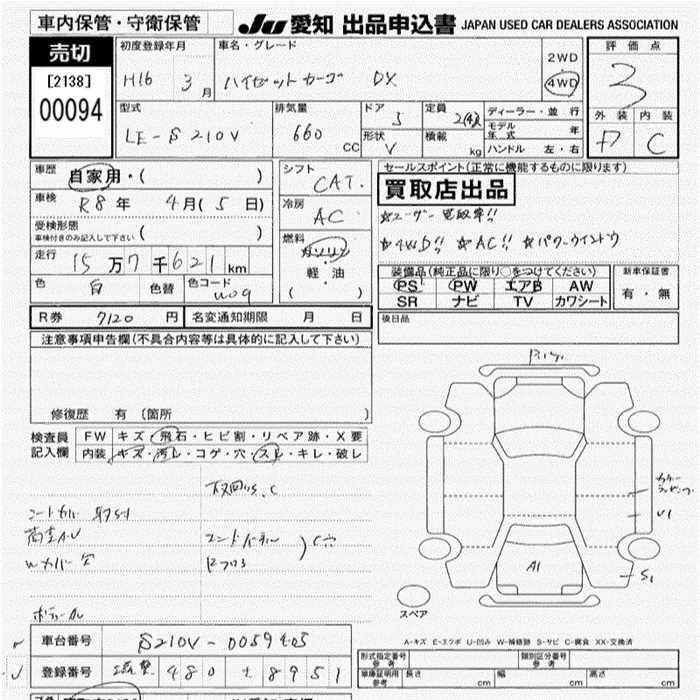 車内保管・守衛保管
JU 愛知 出品申込書 JAPAN USED CAR DEALERS ASSOCIATION
売切
[2138]
00094
初度登録年月
H16 3月
車名・グレード
ハイゼットカーゴ DX
2WD
4WD
評価点
3
外装 内装
F C
型式
LE-S210V
排気量
660 CC
ドア
5
形状
V
定員
積載 kg
ディーラー・並行
モデル年式 年
ハンドル 左・右
車歴
自家用・( )
車検
R8年 4月(5日)
受検形態
車検付きのみ記入して下さい ( )
走行
15万7千621km
色
白
色替
色コード
W09
シフト
CAT.
冷房
AC
燃料
ガソリン
軽油
( )
セールスポイント(正常に機能するものに限ります)
買取店出品
☆ユーザー買取車!!
☆4WD!! ☆AC!! ☆パワーウインドウ
装備品(純正品に限り○をつけてください)
PS PW エアB AW
SR ナビ TV カワシート
新車保証書
有・無
R券 7120円
名変通知期限 月 日
後日品
注意事項申告欄(不具合内容等は具体的に記入して下さい)
修復歴 有 〔箇所 〕
検査員記入欄
FW キズ・飛石・ヒビ割・リペア跡・X要
内装 キズ・汚レ・コゲ・穴・スレ・キレ・破レ
シートカバー取付
Wカバー欠
ボディ
A1
U1
S1
スペア
A-キズ E-エクボ U-凹み W-補修跡 S-サビ C-腐食 XX-交換済
車台番号 S210V-0059405
登録番号 480 8951
型式指定番号 参考
類別区分番号 参考
車庫証明用 参考
長さ cm
幅 cm
高さ cm